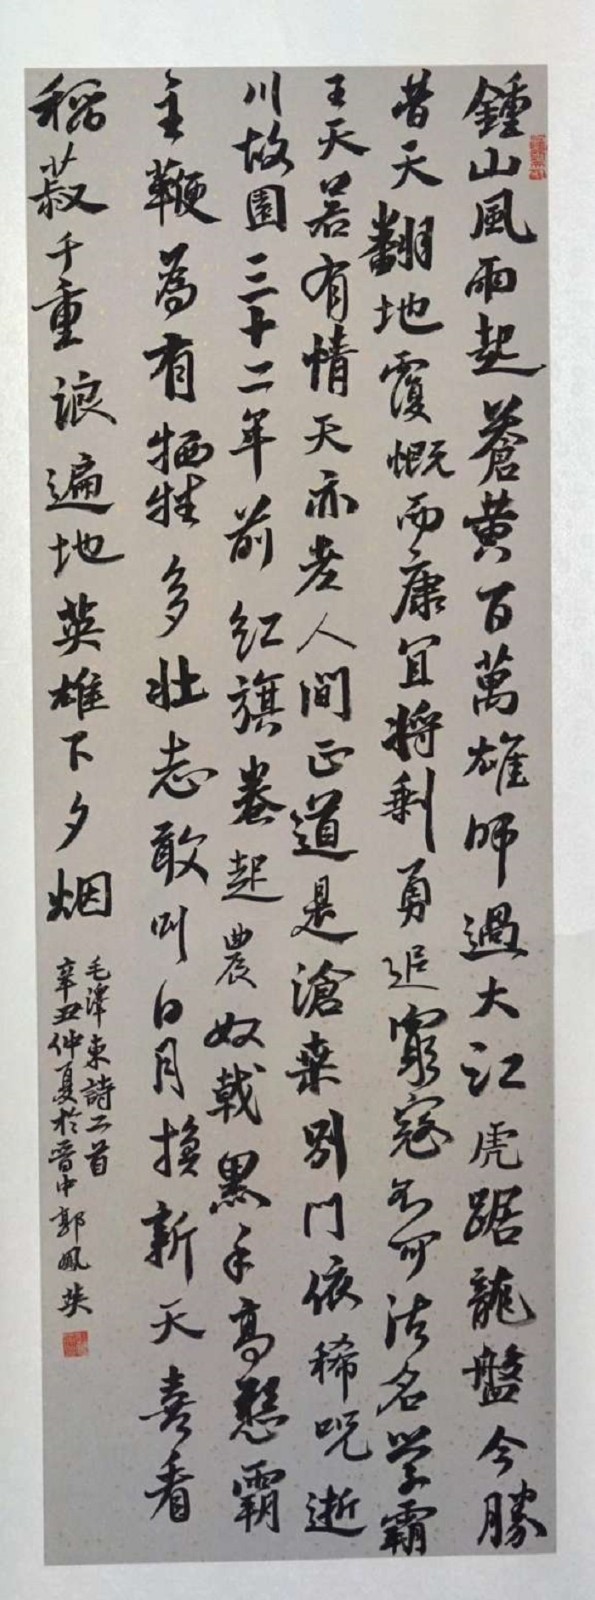 鍾山風雨起蒼黃百萬雄師過大江虎踞龍盤今勝
昔天翻地覆慨而康宜將剩勇追窮寇不可沽名學霸
王天若有情天亦老人間正道是滄桑別門依稀呪逝
川故園三十二年前紅旗卷起農奴戟黑手高懸霸
主鞭為有牺牲多壯志敢叫日月換新天喜看
稻菽千重浪遍地英雄下夕烟
毛澤東詩二首
辛丑仲夏於晉中郭鳳英